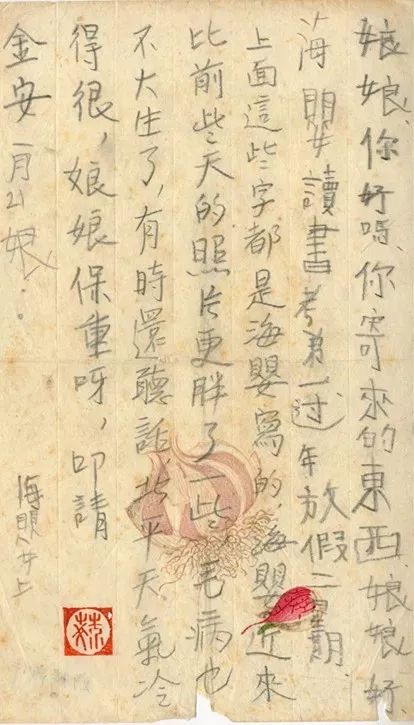 娘娘、你好嗎、你寄來的東西娘娘好、
海嬰讀書考第一过年放假二星期、
上面這些字都是海嬰寫的、海嬰近來
比前些天的照片更胖了一些、毛病也
不大生了，有時還聽話、北平天氣冷
得很，娘娘保重呀，叩請
金安 一月21娘、
海嬰上